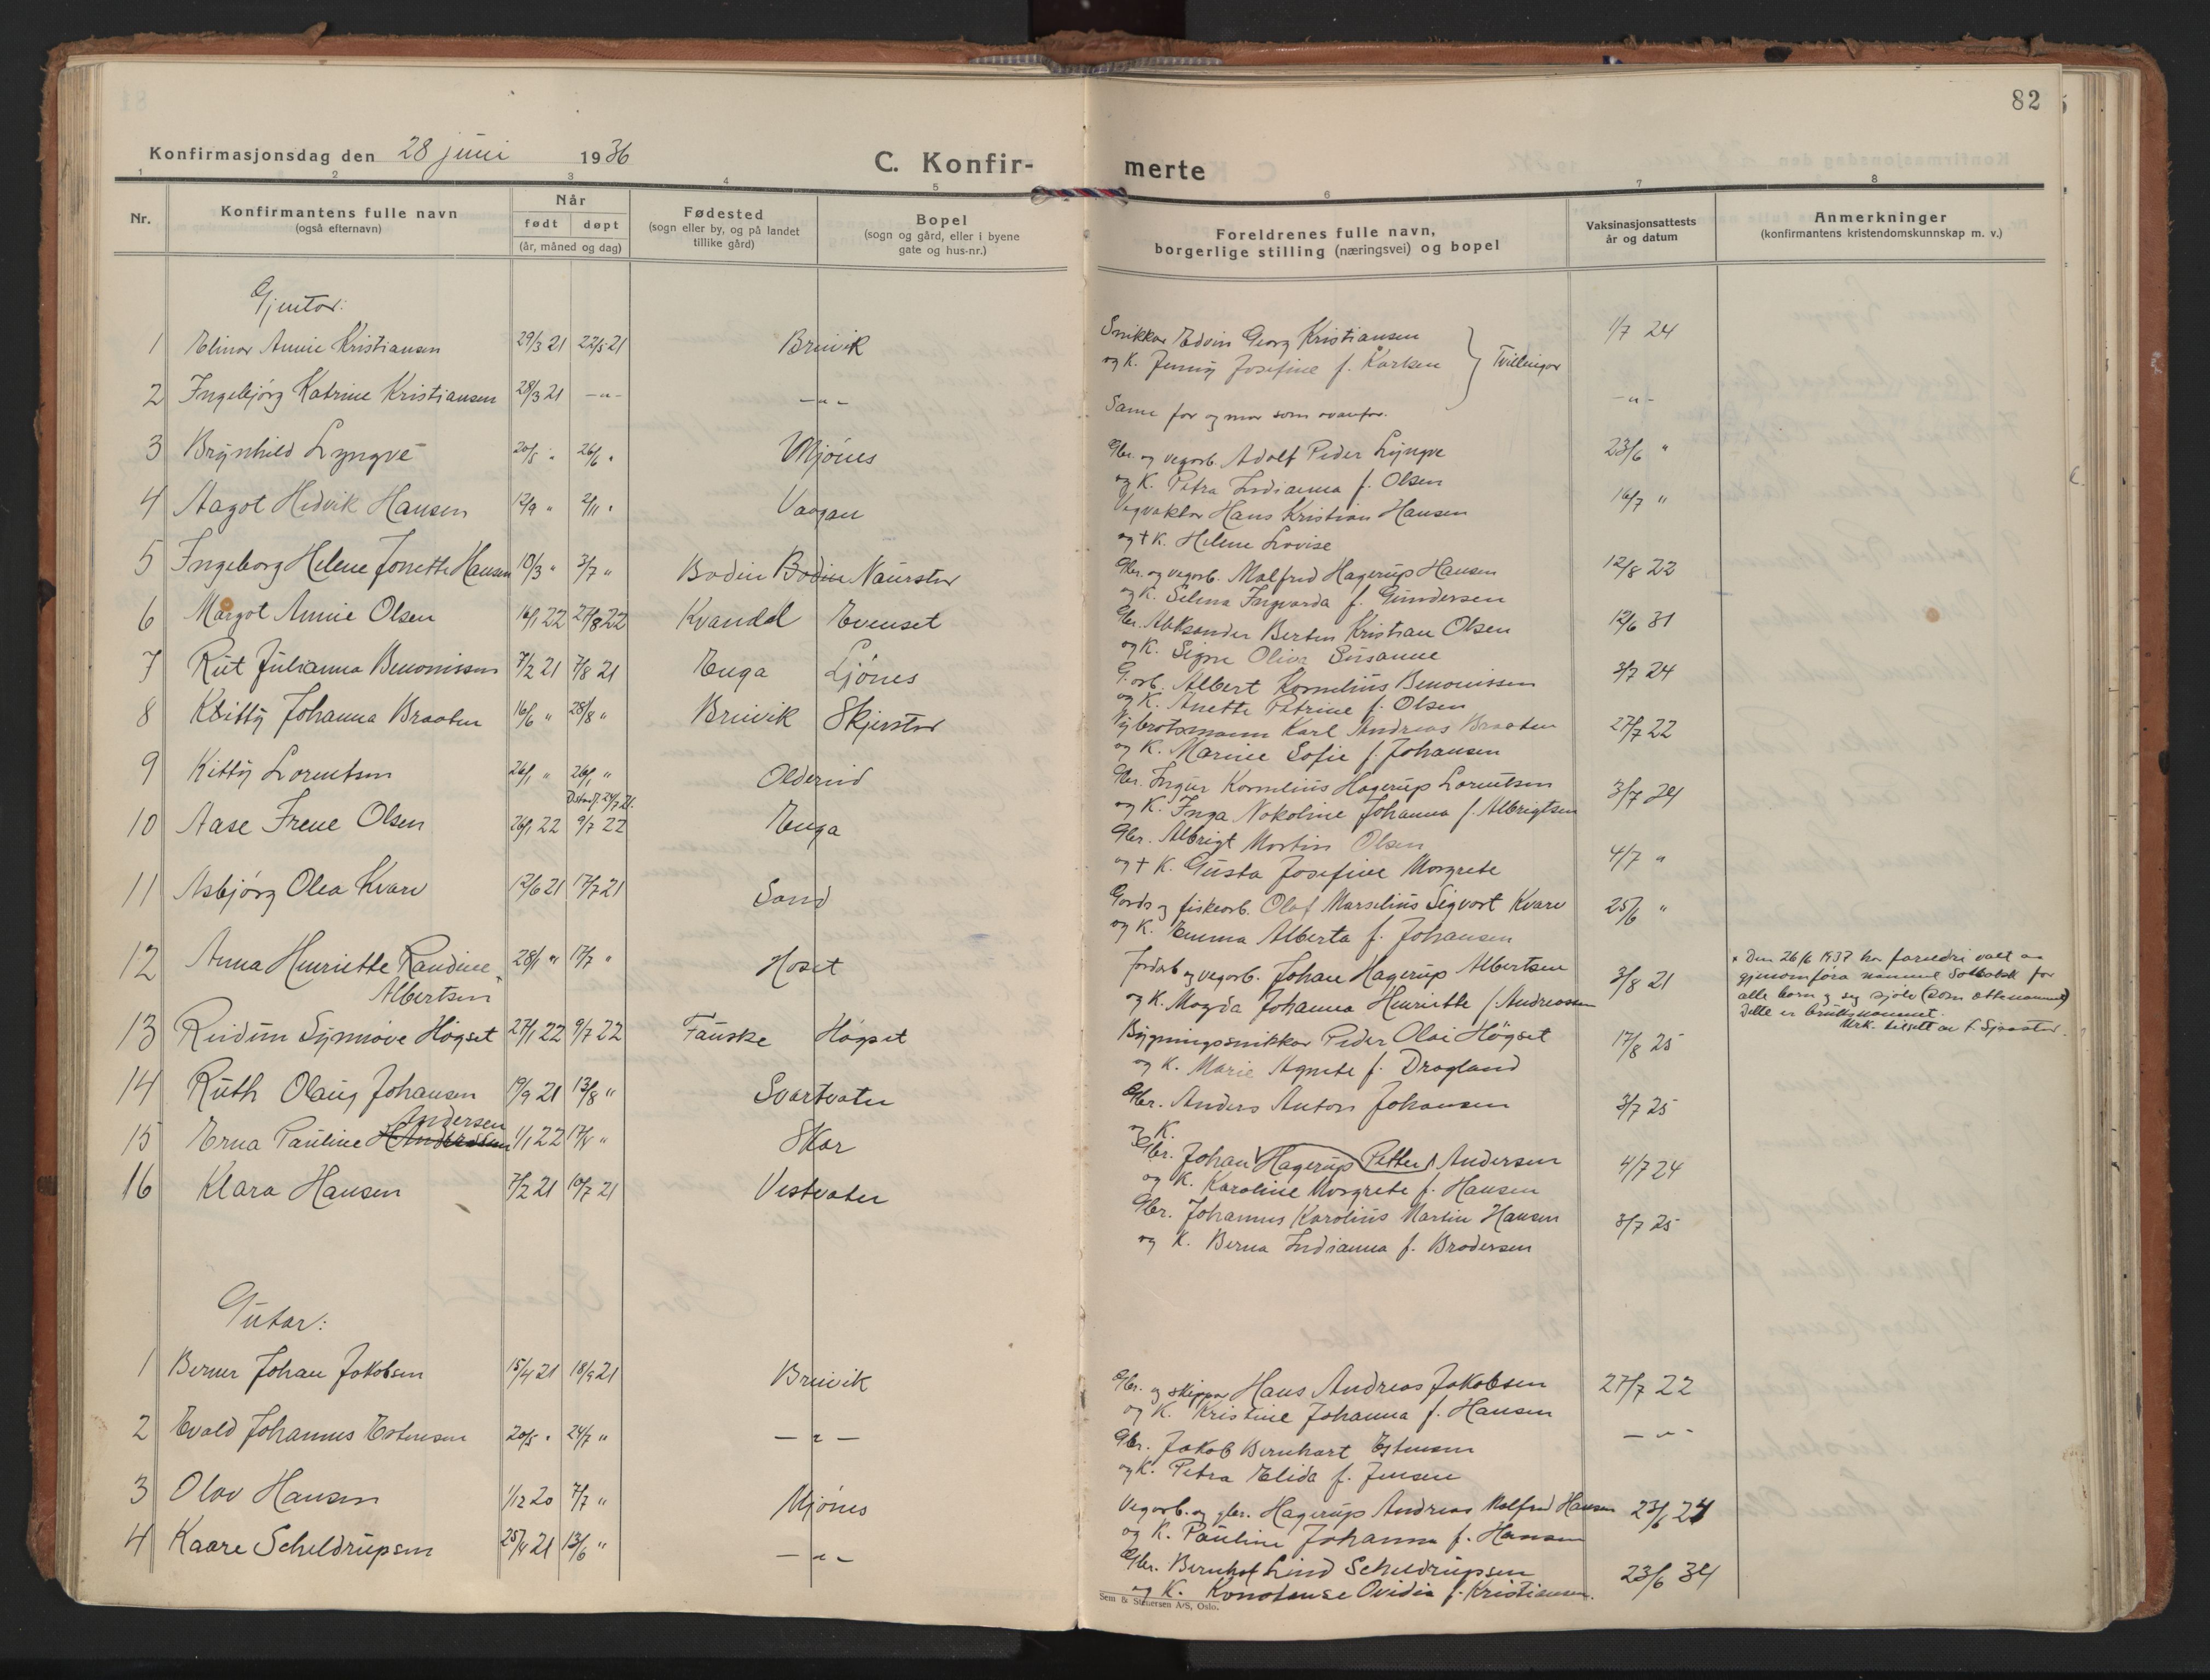 82
Konfirmasjonsdag den 28 juni 1936 C. Konfir-merte
1 2 3 4 5 6 7 8
Nr.
Konfirmantens fulle navn
(også efternavn)
Når
født døpt
(år, måned og dag)
Fødested
(sogn eller by, og på landet
tillike gård)
Bopel
(sogn og gård, eller i byene
gate og hus-nr.)
Foreldrenes fulle navn,
borgerlige stilling (næringsvei) og bopel
Vaksinasjonsattests
år og datum
Anmerkninger
(konfirmantens kristendomskunnskap m. v.)
Gjentor:
1 Elinor Annie Kristiansen 29/3 21 22/5 21 Breivik Snikkar Edvin Georg Kristiansen 1/7 24
og K. Jenny Josefine f. Karlsen } Tvillingar
2 Ingebjørg Katrine Kristiansen 28/3 21 -"- -"- Same far og mor som ovanfor. -"-
3 Brynhild Lyngve 20/5 " 26/6 " Mjónes Gbr. og vegarb. Adolf Peder Lyngve 23/6 "
og K. Petra Indianna f. Olsen
4 Aagot Hedvik Hansen 12/9 " 2/11 " Vaagan Vegvaktar Hans Kristian Hansen 16/7 "
og † K. Helene Lovise
5 Ingeborg Helene Jonette Hansen 10/3 " 3/7 " Bodin Bodin Naurstar Gbr. og vegarb. Malfred Hagerup Hansen 12/8 22
og K. Selma Ingvarda f. Gundersen
6 Margot Annie Olsen 16/1 22 27/8 22 Kvandal Evenset Gbr. Aleksander Berten Kristian Olsen 12/6 31
og K. Signe Oliva Susanne
7 Rut Julianna Benonissen 7/2 21 7/8 21 Enga Ljónes G.arb. Albert Kornelius Benonissen 3/7 24
og K. Anette Petrine f. Olsen
8 Kitty Johanna Braaten 16/6 " 28/8 " Breivik Skjerstad Nybrotsmann Karl Andreas Braaten 27/7 22
og K. Marine Sofie f. Johansen
9 Kitty Lorentsen 26/1 " 26/1 " Oldereid Gbr. Ingvr Kornelius Hagerup Lorentsen 3/7 24
24/7 21.
og K. Inga Nokoline Johanna f. Albrigtsen
10 Aase Irene Olsen 26/1 22 9/7 22 Enga Gbr. Albrigt Martin Olsen 4/7 "
og † K. Gusta Josefine Margrete
11 Asbjørg Olea Kvarv 12/6 21 17/7 21 Sand Gards og fiskearb. Olaf Marselius Sigvart Kvarv 25/6 "
og K. Emma Alberta f. Johansen
12 Anna Henriette Randine 28/1 " 17/7 " Hoset Jordarb og vegarb. Johan Hagerup Albertsen 3/8 21
Albertsen
og K. Magda Johanna Henriette f. Andreassen
* Den 26/6 1937 har foreldri valt aa
gjenomføra namnet Solbakk for
alle born og seg sjølv (som ættenamnet)
Dette er bruksnamnet.
Mrk. tilsett av f. Sjaastad.
13 Reidun Synnöve Högset 27/1 22 9/7 22 Fauske Högset Bygningssnikkar Peder Olai Högset 17/8 25
og K. Marie Agnete f. Dragland
14 Ruth Olaug Johansen 19/9 21 13/8 " Svartvatn Gbr. Anders Anton Johansen 3/7 25
og K.
Andersen
15 Erna Pauline 1/1 22 Skar Gbr. Johan Hagerup Petter Andersen 4/7 24
og K. Karoline Margrete f. Hansen
16 Klara Hansen 7/2 21 10/7 21 Vestvatn Gbr. Johannes Karolius Martin Hansen 3/7 25
og K. Berna Indianna f. Brodersen
Gutar:
1 Berner Johan Jakobsen 15/4 21 18/9 21 Breivik Gbr. og skippar Hans Andreas Jakobsen 27/7 22
og K. Kristine Johanna f. Hansen
2 Evald Johannes Estensen 20/5 " 24/7 " -"- Gbr. Jakob Bernhart Estensen -"-
og K. Petra Elida f. Jensen
3 Olav Hansen 1/12 20 7/7 " Mjónes Vegarb. og gbr. Hagerup Andreas Malfred Hansen 23/6 24
og K. Pauline Johanna f. Hansen
4 Kaare Scheldrupsen 25/4 21 13/6 " -"- Gbr. Bernhof Lind Scheldrupsen 23/6 34
og K. Konstanse Ovidia f. Kristiansen.
Sem & Stenersen A/S, Oslo.